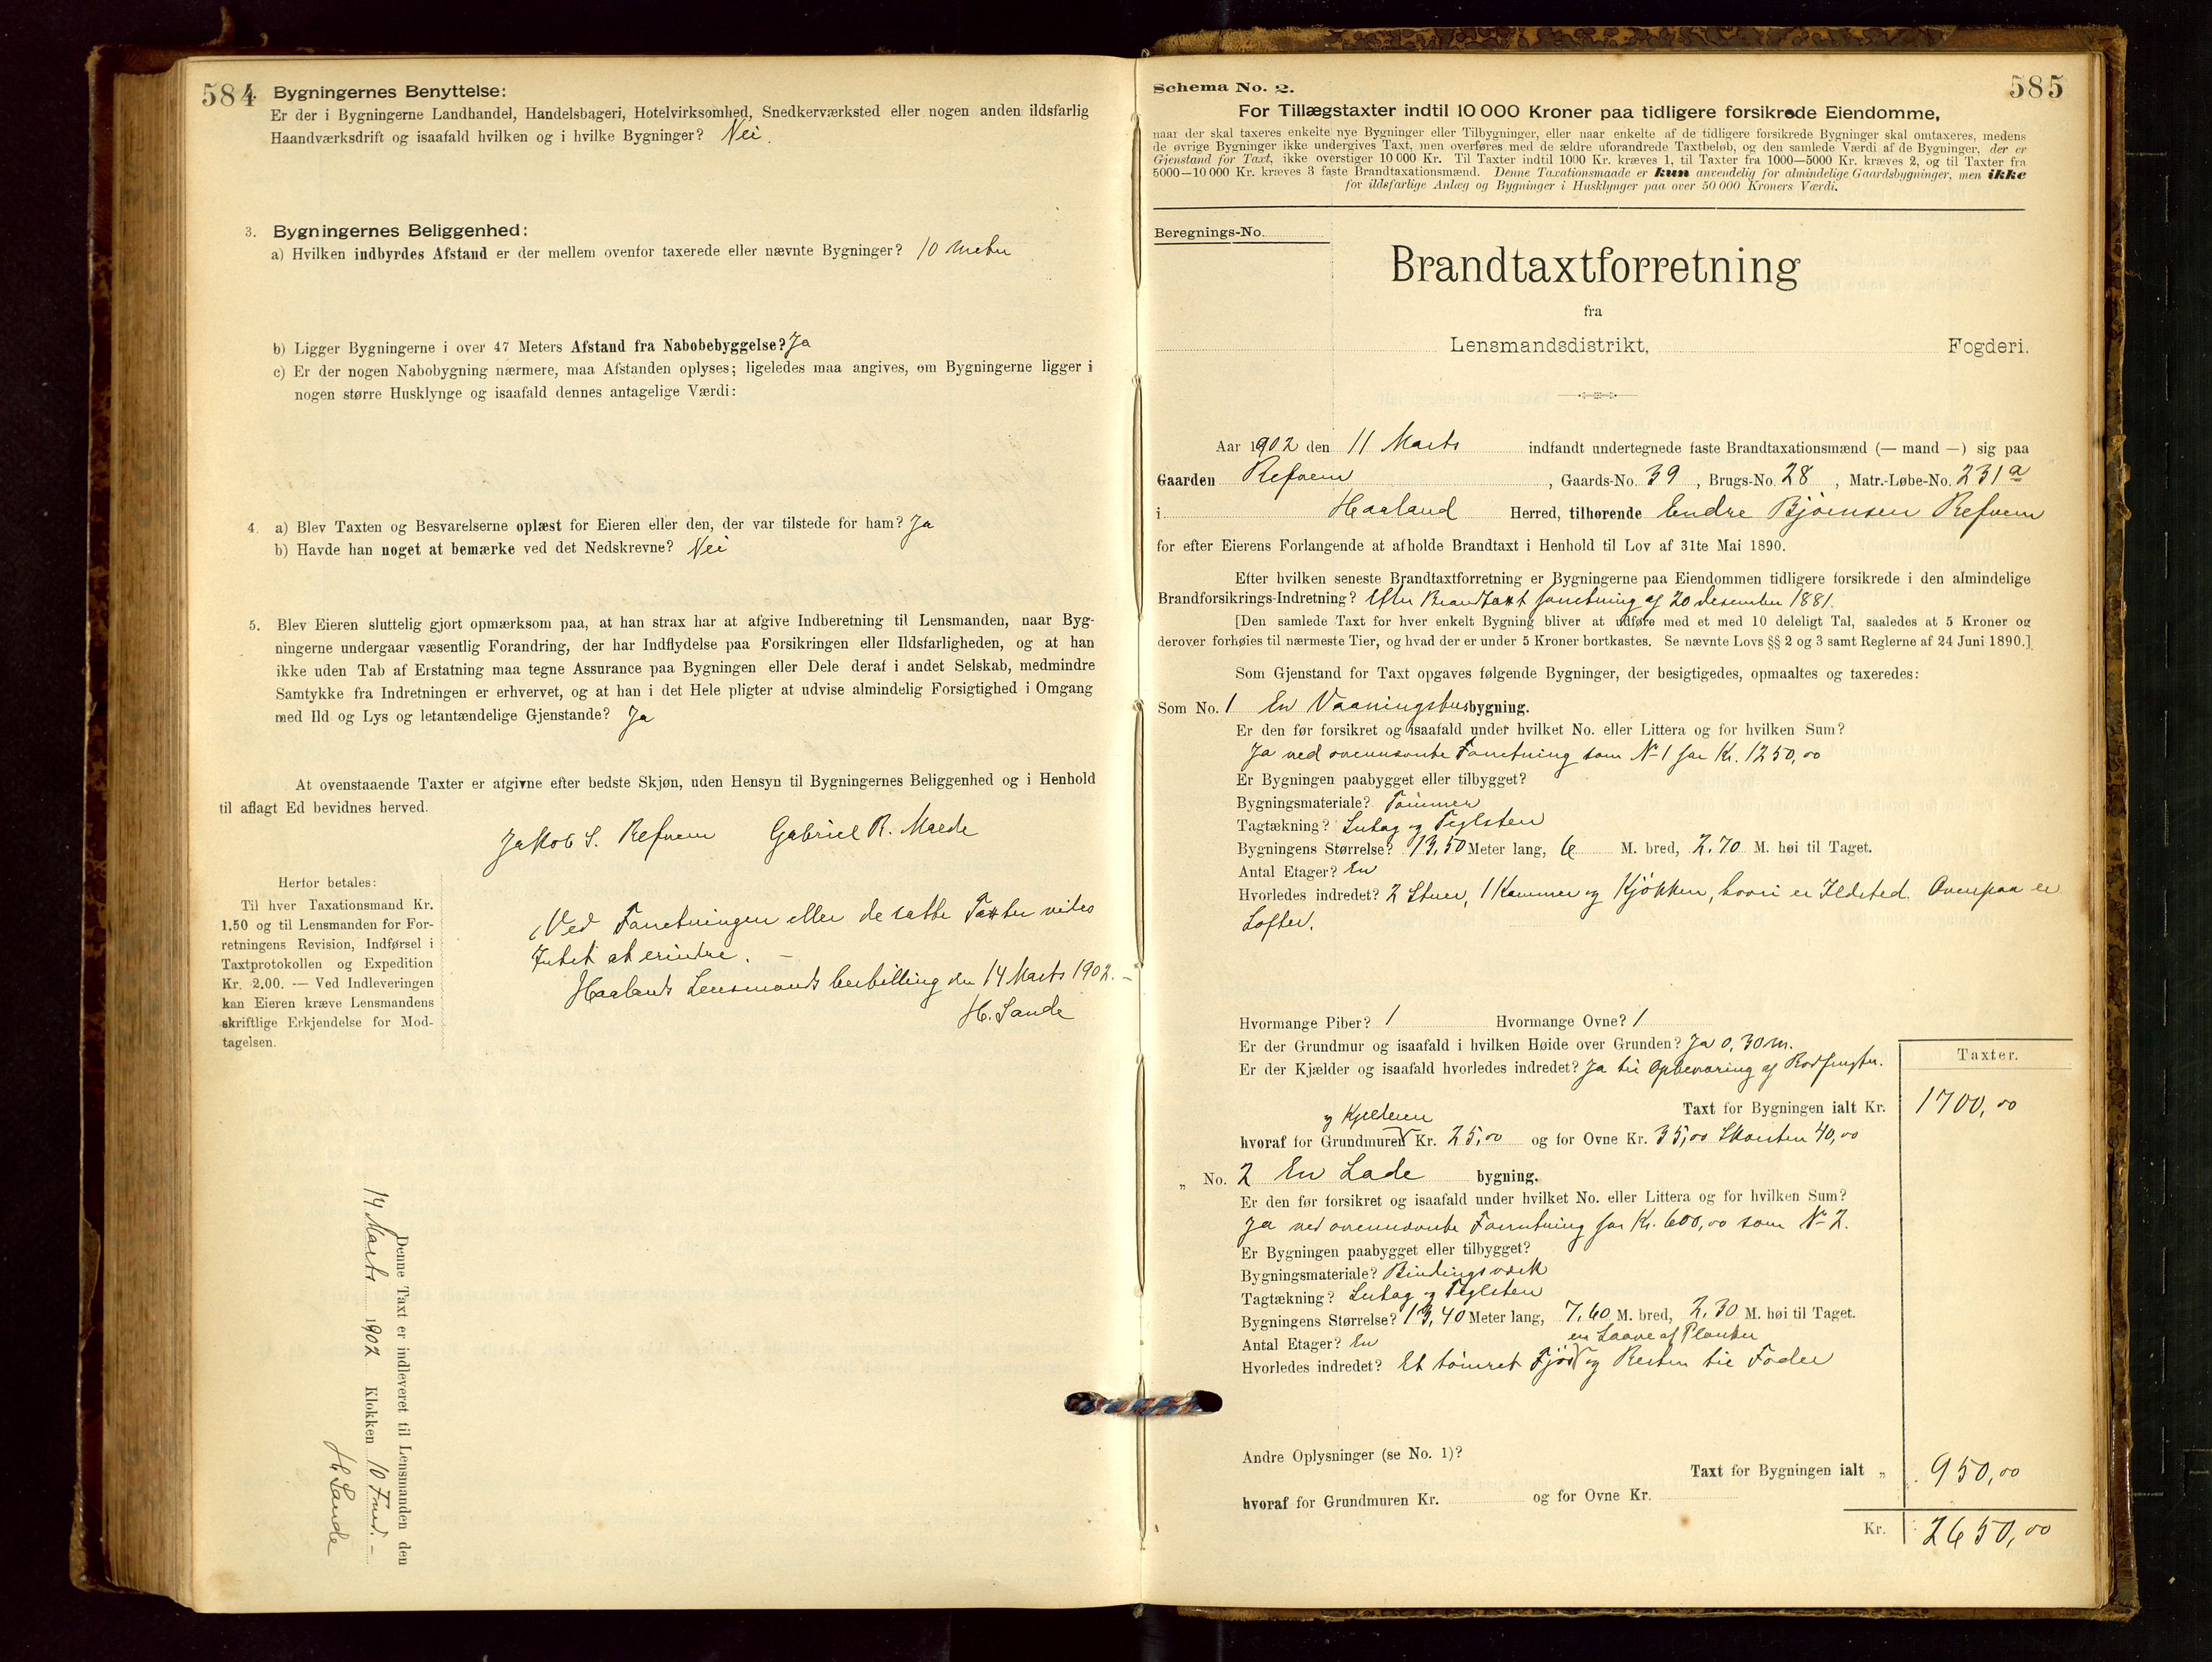 584
Bygningernes Benyttelse:
Er der i Bygningerne Landhandel, Handelsbageri, Hotelvirksomhed, Snedkerværksted eller nogen anden ildsfarlig
Haandværksdrift og isaafald hvilken og i hvilke Bygninger? Nei.
3. Bygningernes Beliggenhed:
a) Hvilken indbyrdes Afstand er der mellem ovenfor taxerede eller nævnte Bygninger? 10 meter
b) Ligger Bygningerne i over 47 Meters Afstand fra Nabobebyggelse? Ja
c) Er der nogen Nabobygning nærmere, maa Afstanden oplyses; ligeledes maa angives, om Bygningerne ligger i
nogen større Husklynge og isaafald dennes antagelige Værdi:
4. a) Blev Taxten og Besvarelserne oplæst for Eieren eller den, der var tilstede for ham? Ja
b) Havde han noget at bemærke ved det Nedskrevne? Nei
5. Blev Eieren sluttelig gjort opmærksom paa, at han strax har at afgive Indberetning til Lensmanden, naar Byg-
ningerne undergaar væsentlig Forandring, der har Indflydelse paa Forsikringen eller Ildsfarligheden, og at han
ikke uden Tab af Erstatning maa tegne Assurance paa Bygningen eller Dele deraf i andet Selskab, medmindre
Samtykke fra Indretningen er erhvervet, og at han i det Hele pligter at udvise almindelig Forsigtighed i Omgang
med Ild og Lys og letantændelige Gjenstande? Ja
At ovenstaaende Taxter er afgivne efter bedste Skjøn, uden Hensyn til Bygningernes Beliggenhed og i Henhold
til aflagt Ed bevidnes herved.
Jakob S. Refvem Gabriel R. Malde
Herfor betales:
Til hver Taxationsmand Kr.
1.50 og til Lensmanden for For-
retningens Revision, Indførsel i
Taxtprotokollen og Expedition
Kr. 2.00. — Ved Indleveringen
kan Eieren kræve Lensmandens
skriftlige Erkjendelse for Mod-
tagelsen.
Ved Forretningen eller de satte Taxter vides
Intet at erindre. –
Haalands Lensmands bestilling den 14 Marts 1902. –
H. Sande
Denne Taxt er indleveret til Lensmanden den
14 Marts 1902 Klokken 10 Fmd. –
H. Sande
Schema No. 2.
585
For Tillægstaxter indtil 10 000 Kroner paa tidligere forsikrede Eiendomme,
naar der skal taxeres enkelte nye Bygninger eller Tilbygninger, eller naar enkelte af de tidligere forsikrede Bygninger skal omtaxeres, medens
de øvrige Bygninger ikke undergives Taxt, men overføres med de ældre uforandrede Taxtbeløb, og den samlede Værdi af de Bygninger, der er
Gjenstand for Taxt, ikke overstiger 10 000 Kr. Til Taxter indtil 1000 Kr. kræves 1, til Taxter fra 1000—5000 Kr. kræves 2, og til Taxter fra
5000—10 000 Kr. kræves 3 faste Brandtaxationsmænd. Denne Taxationsmaade er kun anvendelig for almindelige Gaardsbygninger, men ikke
for ildsfarlige Anlæg og Bygninger i Husklynger paa over 50 000 Kroners Værdi.
Beregnings-No.
Brandtaxtforretning
fra
Lensmandsdistrikt, Fogderi.
Aar 1902 den 11 Marts indfandt undertegnede faste Brandtaxationsmænd (— mand —) sig paa
Gaarden Refvem, Gaards-No. 39, Brugs-No. 28, Matr.-Løbe-No. 231a
i Haaland Herred, tilhørende Endre Bjørnsen Refvem
for efter Eierens Forlangende at afholde Brandtaxt i Henhold til Lov af 31te Mai 1890.
Efter hvilken seneste Brandtaxtforretning er Bygningerne paa Eiendommen tidligere forsikrede i den almindelige
Brandforsikrings-Indretning? Efter Brandtaxt forretning af 20 desember 1881.
[Den samlede Taxt for hver enkelt Bygning bliver at udføre med et med 10 deleligt Tal, saaledes at 5 Kroner og
derover forhøies til nærmeste Tier, og hvad der er under 5 Kroner bortkastes. Se nævnte Lovs §§ 2 og 3 samt Reglerne af 24 Juni 1890.]
Som Gjenstand for Taxt opgaves følgende Bygninger, der besigtigedes, opmaaltes og taxeredes:
Som No. 1 En Vaaningshusbygning.
Er den før forsikret og isaafald under hvilket No. eller Littera og for hvilken Sum?
Ja ved ovennævnte Forretning som N-1 for Kr. 1250,00
Er Bygningen paabygget eller tilbygget?
Bygningsmateriale? Tømmer
Tagtækning? Lutag og Teglsten
Bygningens Størrelse? 13,50 Meter lang, 6 M. bred, 2.70 M. høi til Taget.
Antal Etager? En
Hvorledes indredet? 2 Stuer, 1 Kammer og Kjøkken, hvori er Ildsted. Ovenpaa er
Lofter.
Hvormange Piber? 1 Hvormange Ovne? 1
Er der Grundmur og isaafald i hvilken Høide over Grunden? Ja 0,30 m.
Er der Kjælder og isaafald hvorledes indredet? Ja til Opbevaring af Rodfrugter.
Taxter.
Taxt for Bygningen ialt Kr. 1700,00
og Kjelleren
hvoraf for Grundmuren Kr. 25,00 og for Ovne Kr. 35,00 Skorsten 40,00
„ No. 2 En Lade bygning.
Er den før forsikret og isaafald under hvilket No. eller Littera og for hvilken Sum?
Ja ved ovennævnte Forretning for Kr. 600,00 som N- 2.
Er Bygningen paabygget eller tilbygget?
Bygningsmateriale? Bindingsværk
Tagtækning? Lutag og Teglsten
Bygningens Størrelse? 13,40 Meter lang, 7,60 M. bred, 2,30 M. høi til Taget.
Antal Etager? En
en Laave af Planker
Hvorledes indredet? Et tømret Fjøs og Resten til Foder
Andre Oplysninger (se No. 1)?
Taxt for Bygningen ialt „ 950,00
hvoraf for Grundmuren Kr. og for Ovne Kr.
Kr. 2650,00